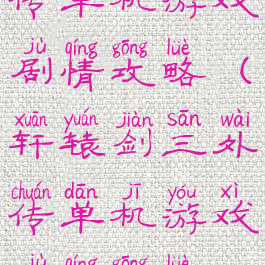 传单机游戏
jù qíng gōng lüè
剧情攻略（
xuān yuán jiàn sān wài
轩辕剑三外
chuán dān jī yóu xì
传单机游戏
jù qíng gōng lüè